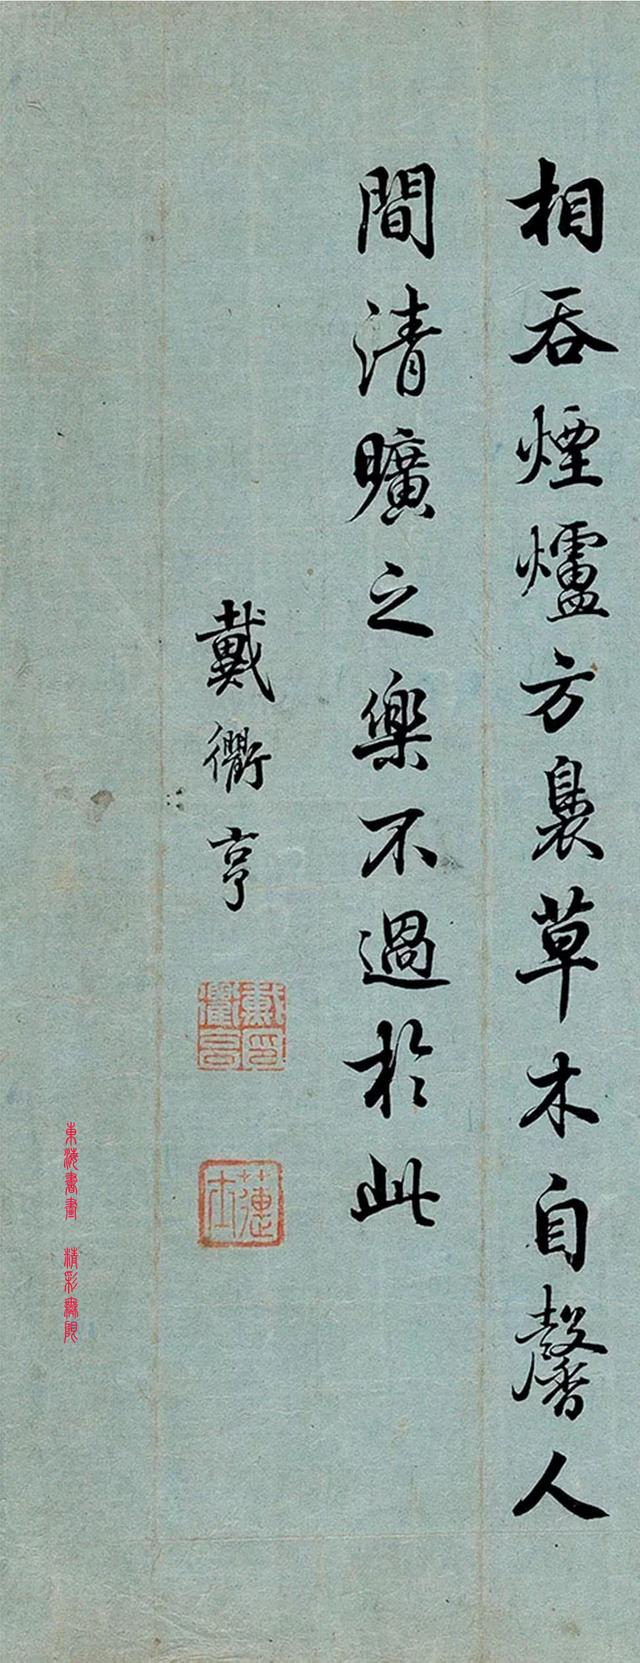 相吞煙爐方裊草木自馨人
間清曠之樂不過於此
戴衢亨
戴印衢亨
蓮士
東海書畫 精彩無限